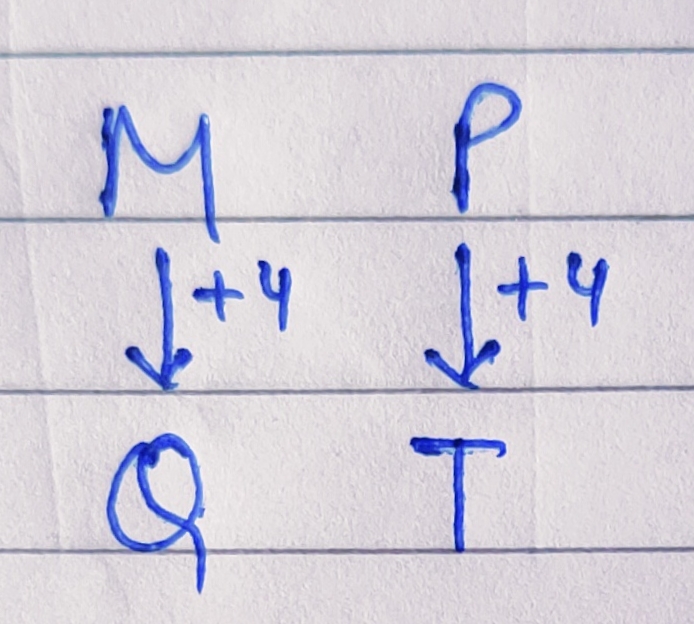 M P
↓ +4 ↓ +4
Q T